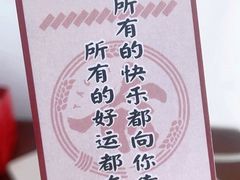 所有的快乐都向你
所有的好运都